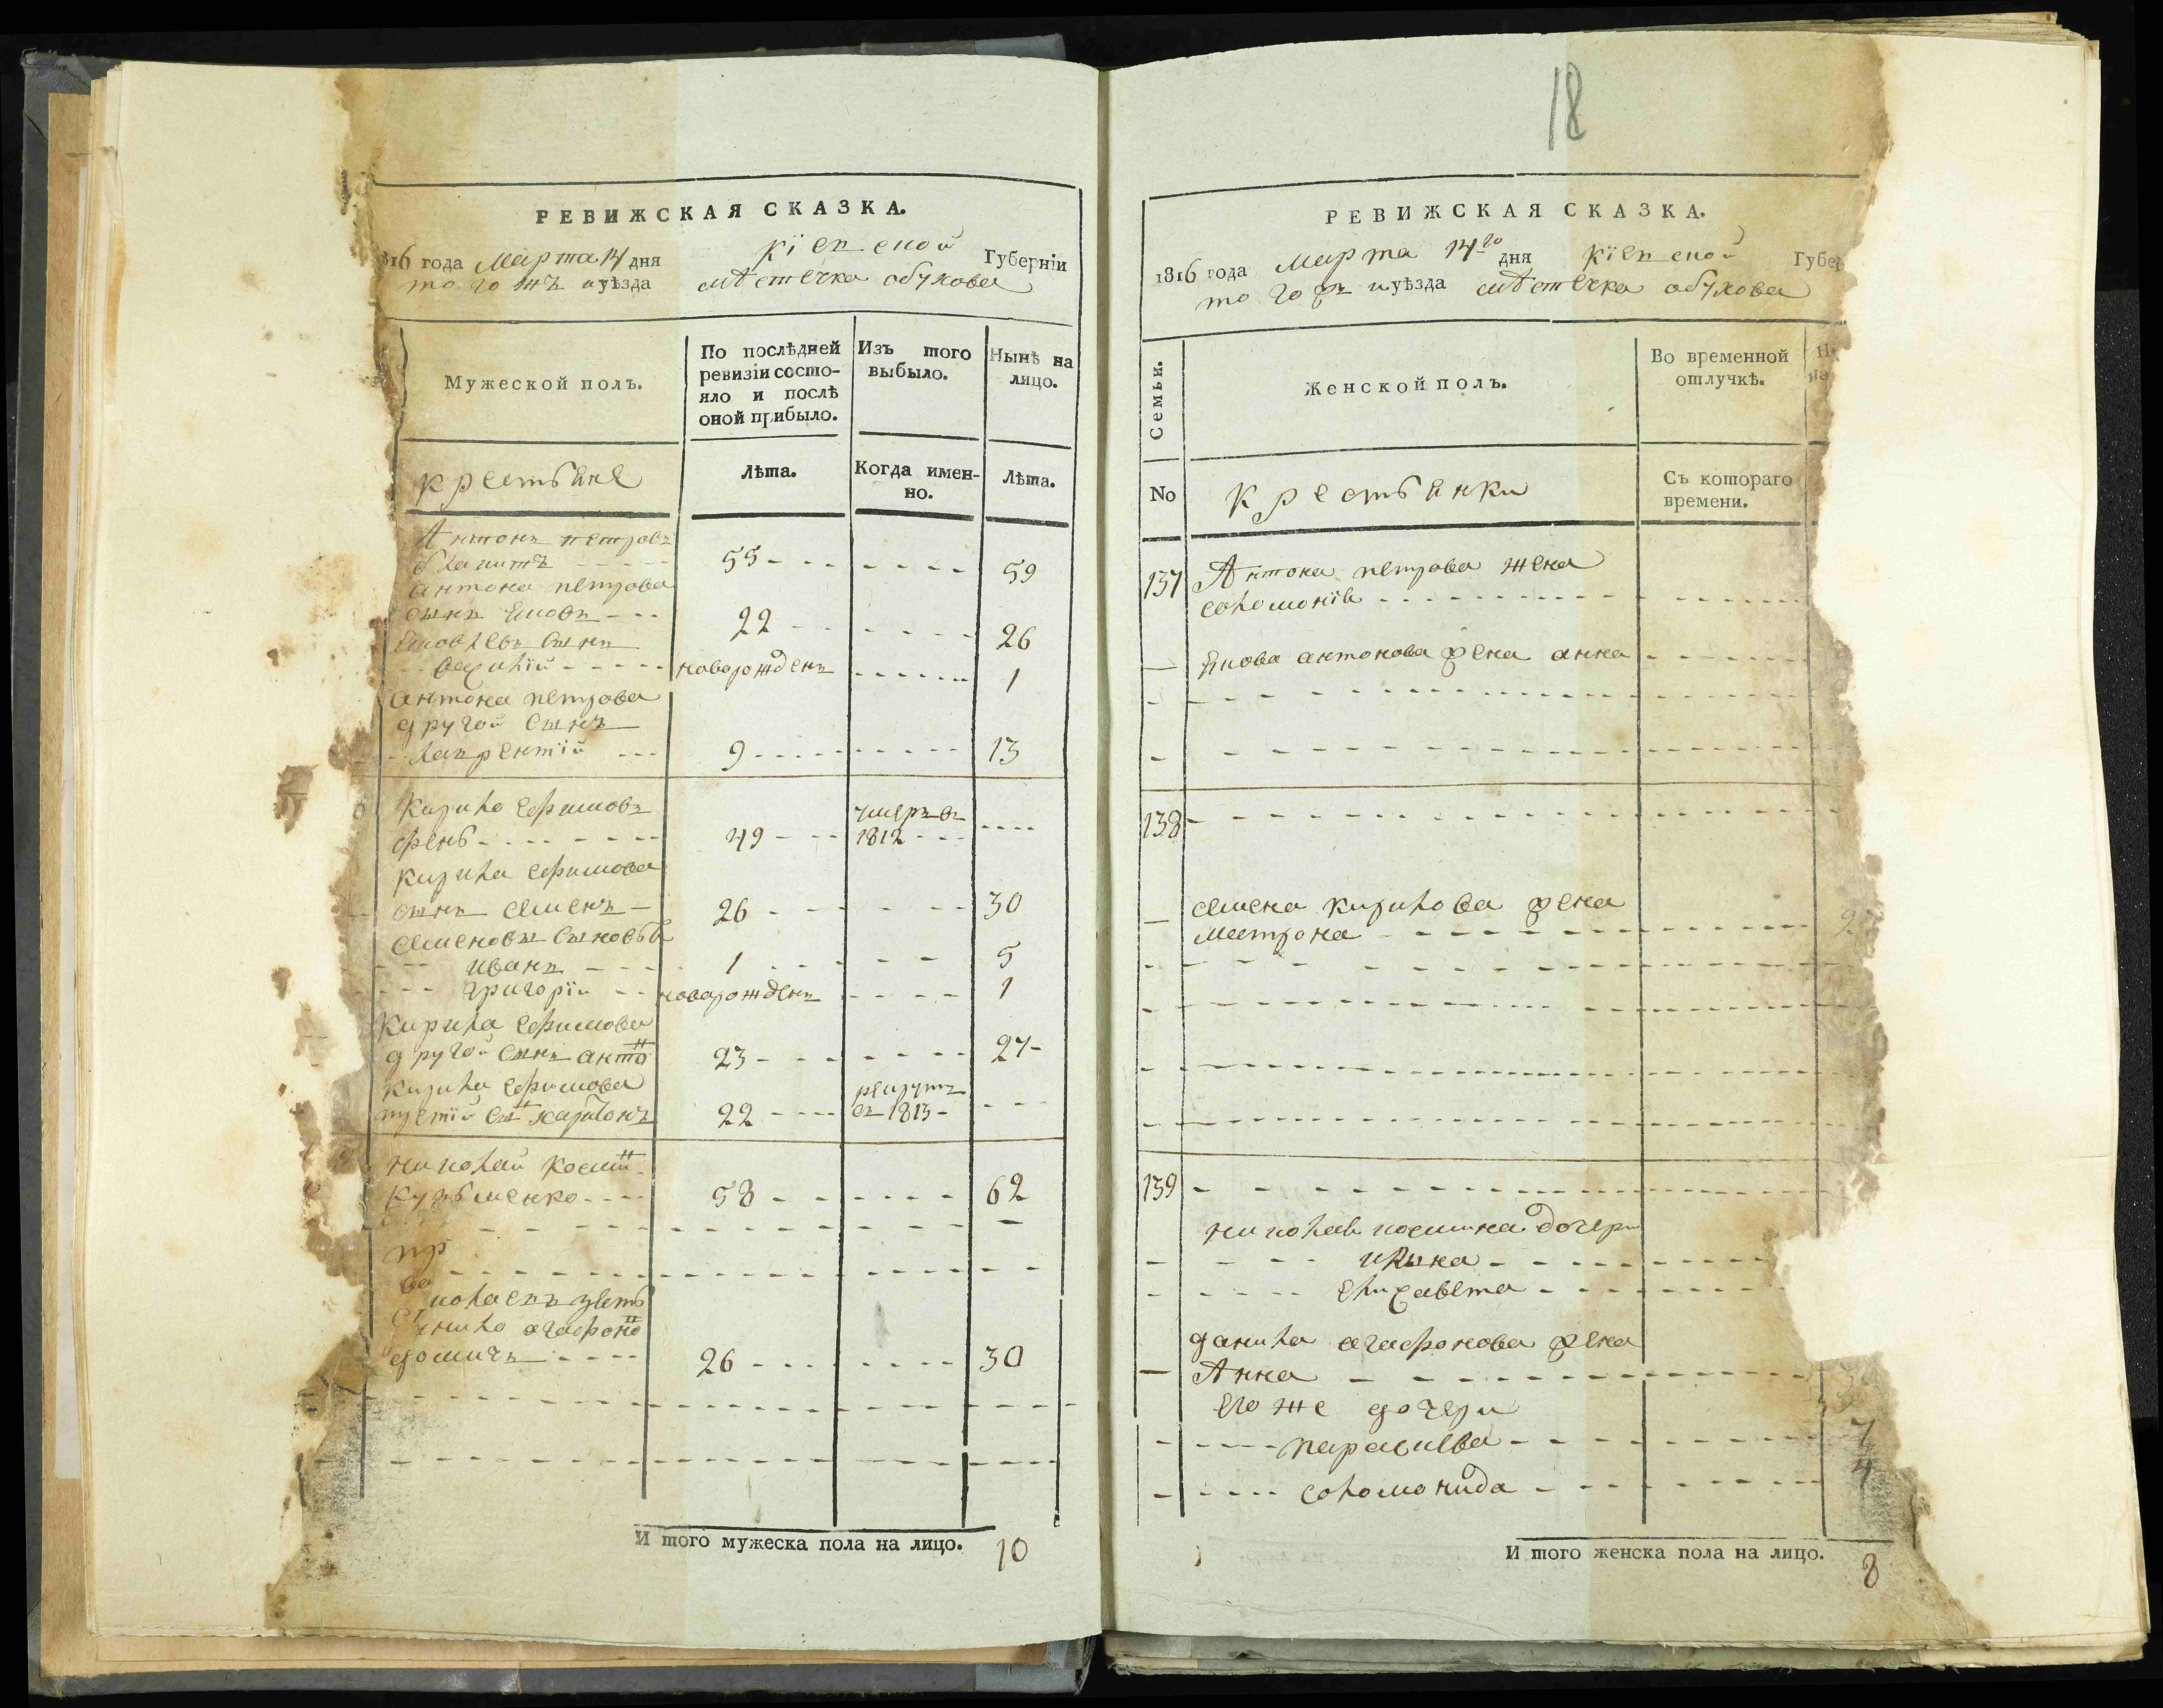 РЕВИЖСКАЯ СКАЗКА.
316 года Марта 14 дня Кіевской Губерніи
того жъ уѣзда мѣстечка обухова
Мужеской полъ.
По послѣдней ревизіи состо-
яло и послѣ
оной прибыло.
Изъ того
выбыло.
Нынѣ на
лицо.
крестьяне
Лѣта.
Когда имен-
но.
Лѣта.
Антонъ петровъ
55 59
антона петрова
сынъ яковъ 22 26
яковлевъ сынъ
василій новорожденъ 1
антона петрова
другой сынъ
лаврентій 9 13
Кирило ефимовъ
фень 49 умеръ въ 1812
Кирила ефимова
сынъ семенъ 26 30
семеновы сыновья
иванъ 1 5
григорій новорожденъ 1
Кирила ефимова
другой сынъ анто н 23 27
Кирила ефимова
третій сы н харитонъ 22 рекрутъ въ 1813
николай косми н
кузьменко 58 62
пр
во
колаевъ зять
данило агафоно в
домичъ 26 30
И того мужеска пола на лицо. 10
18
РЕВИЖСКАЯ СКАЗКА.
1816 года Марта 14 го дня Кіевской Губер
того жъ уѣзда мѣстечка обухова
Семьи.
Женской полъ.
Во временной
отлучкѣ.
Н
на
No
крестьянки
Съ котораго
времени.
137 Антона петрова жена
соломонія
якова антонова жена анна
138
семена кирилова жена
матрона 2
139
николая космина дочери
ирина
елизавета
данила агафонова жена
Анна
его же дочери
параскева 7
соломонида 4
И того женска пола на лицо. 8